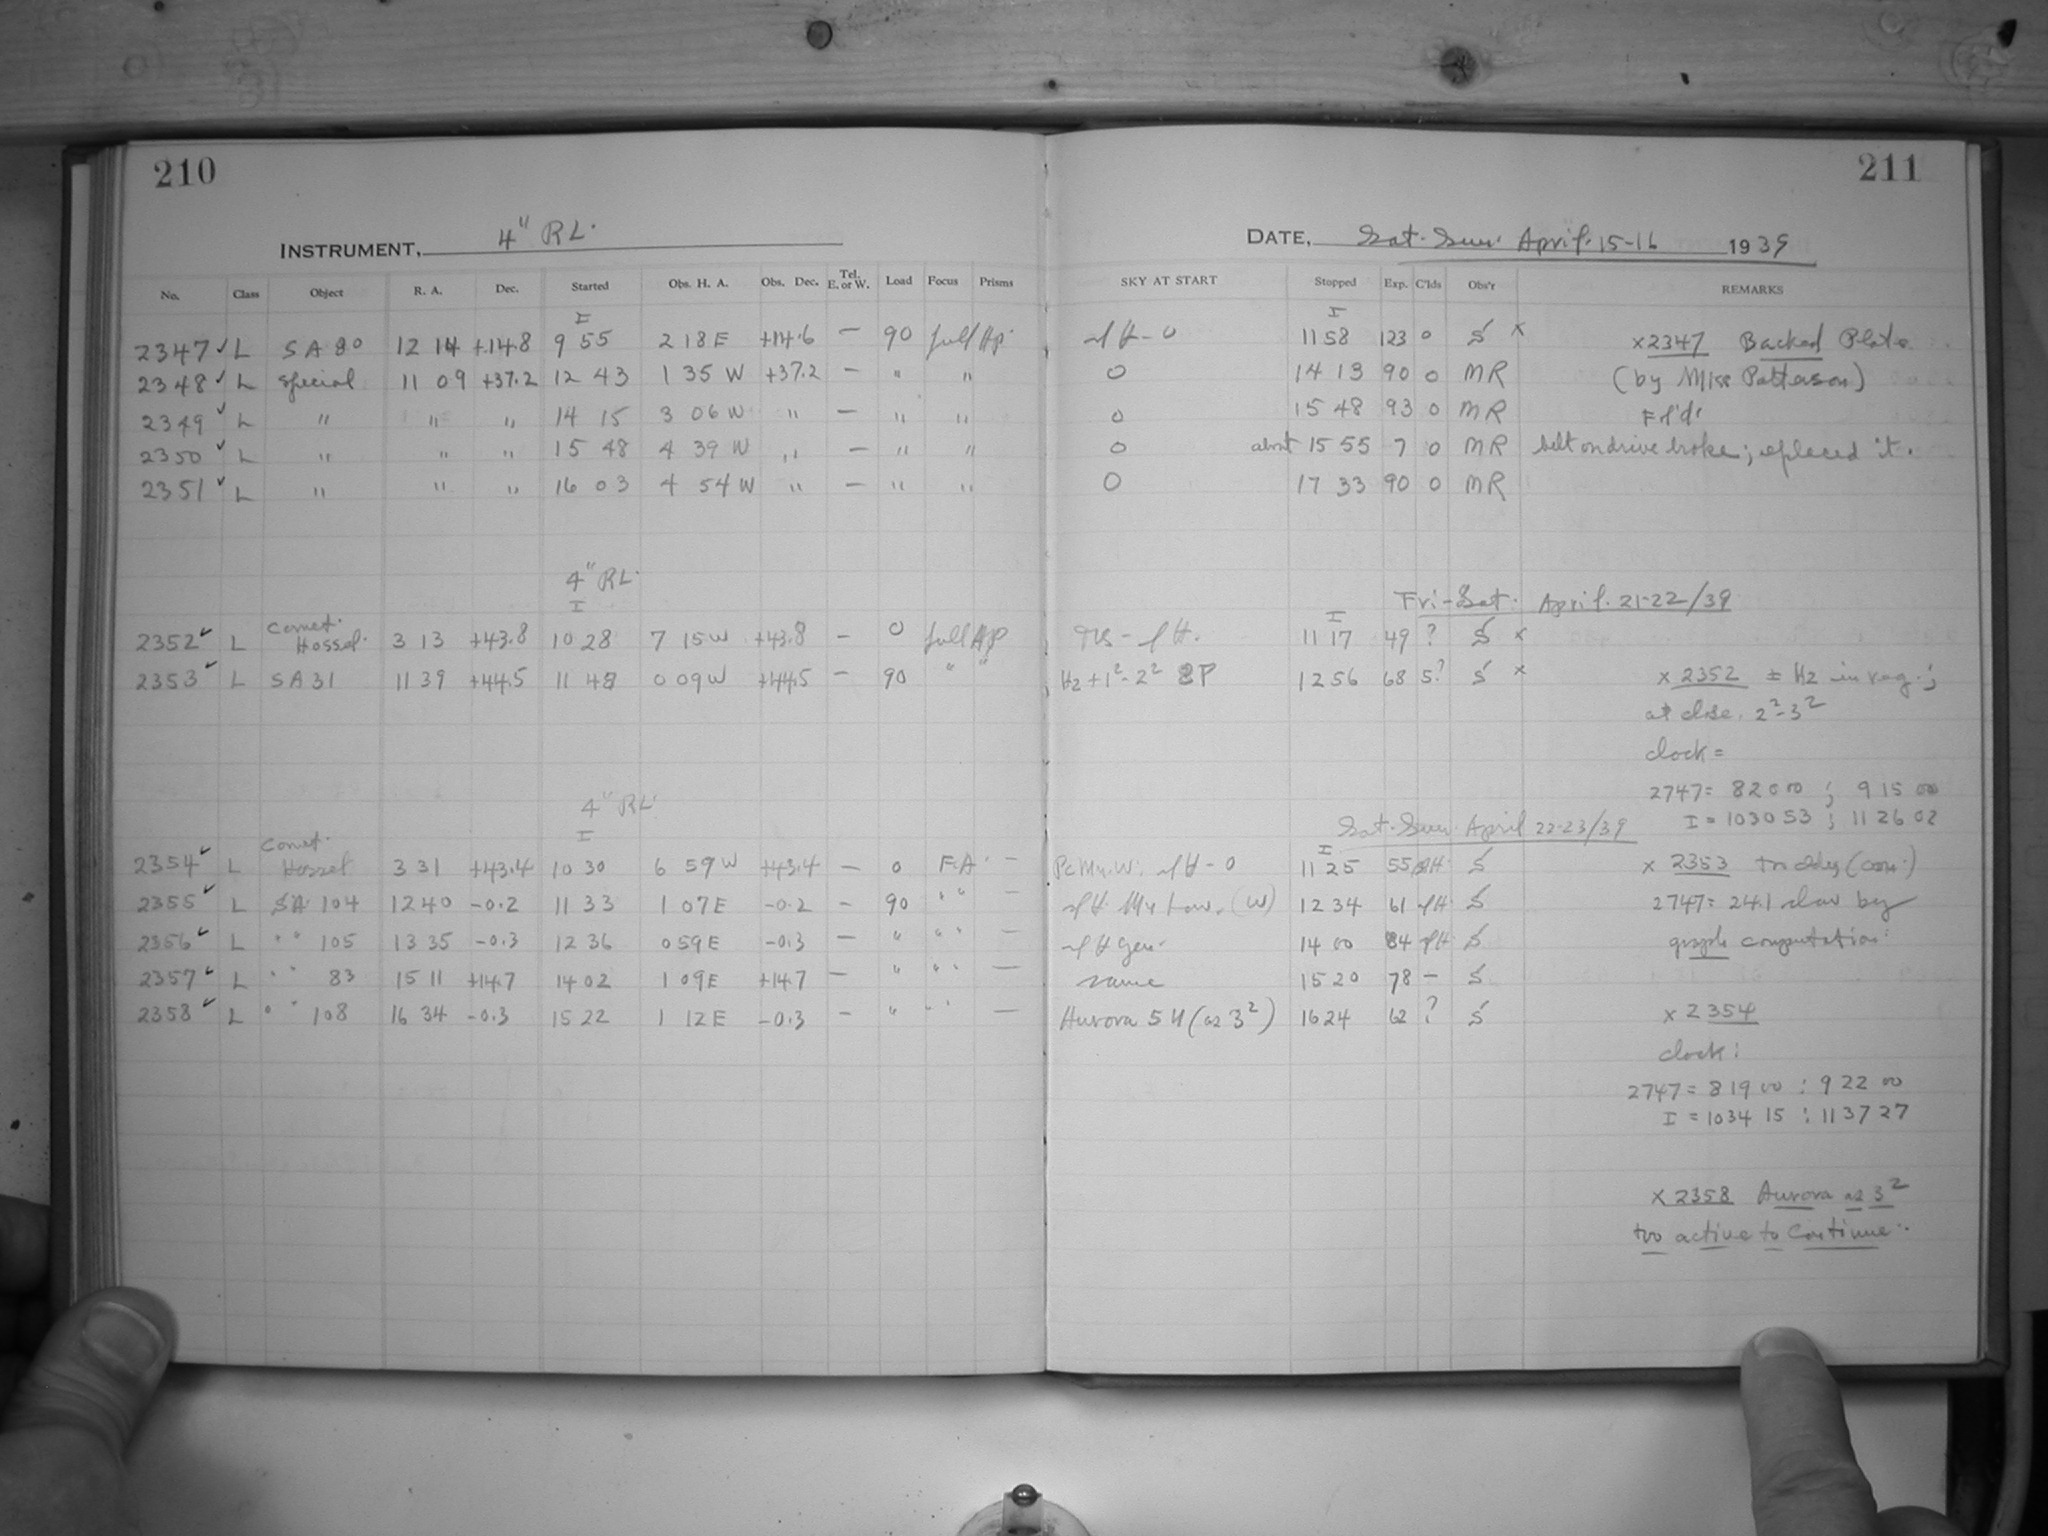 210
INSTRUMENT, 4" RL.
No. Class Object R. A. Dec. Started Obs. H. A. Obs. Dec. Tel. E. or W. Load Focus Prisms
I
2347 ✓ L SA 80 12 14 +14.8 9 55 2 18 E +14.6 — 90 full Ap.
2348 ✓ L Special 11 09 +37.2 12 43 1 35 W +37.2 — " "
2349 ✓ L " " " 14 15 3 06 W " — " "
2350 ✓ L " " " 15 48 4 39 W " — " "
2351 ✓ L " " " 16 03 4 54 W " — " "
4" RL.
I
2352 ✓ L Comet. 3 13 +43.8 10 28 7 15 W +43.8 — 0 full Ap
2353 ✓ L SA 31 11 39 +44.5 11 48 0 09 W +44.5 — 90 " "
4" RL.
I
2354 ✓ L Comet. 3 31 +43.4 10 30 6 59 W +43.4 — 0 F.A. —
2355 ✓ L SA 104 12 40 -0.2 11 33 1 07 E -0.2 — 90 " " —
2356 ✓ L " " 105 13 35 -0.3 12 36 0 59 E -0.3 — " " " —
2357 ✓ L " " 83 15 11 +14.7 14 02 1 09 E +14.7 — " " " —
2358 ✓ L " " 108 16 34 -0.3 15 22 1 12 E -0.3 — " " " —
211
DATE, Sat. Sun. April. 15-16 1939
SKY AT START Stopped Exp. C'lds Obs'r REMARKS
I
H - 0 11 58 123 0 S x x 2347 Backed Plate
0 14 13 90 0 MR (by Miss Patterson)
0 15 48 93 0 MR
0 about 15 55 7 0 MR belt on drive broke; replaced it.
0 17 33 90 0 MR
Fri-Sat. April. 21-22/39
I
H. 11 17 49 ? S x
Hz + 1² - 2² 12 56 68 5? S x x 2352 Hz in reg.;
at close, 2² - 3²
clock =
2747 = 8 20 00 ; 9 15 00
I = 10 30 53 ; 11 26 02
Sat. Sun. April 22-23/39
I
H - 0 11 25 55 H S x 2353
(W) 12 34 61 H S 2747 = 24.1 slow by
H gen. 14 00 84 H S graph computation
same 15 20 78 — S
Aurora 5 H (as 3²) 16 24 62 ? S x 2354
clock:
2747 = 8 19 00 : 9 22 00
I = 10 34 15 : 11 37 27
x 2358 Aurora as 3²
too active to continue.